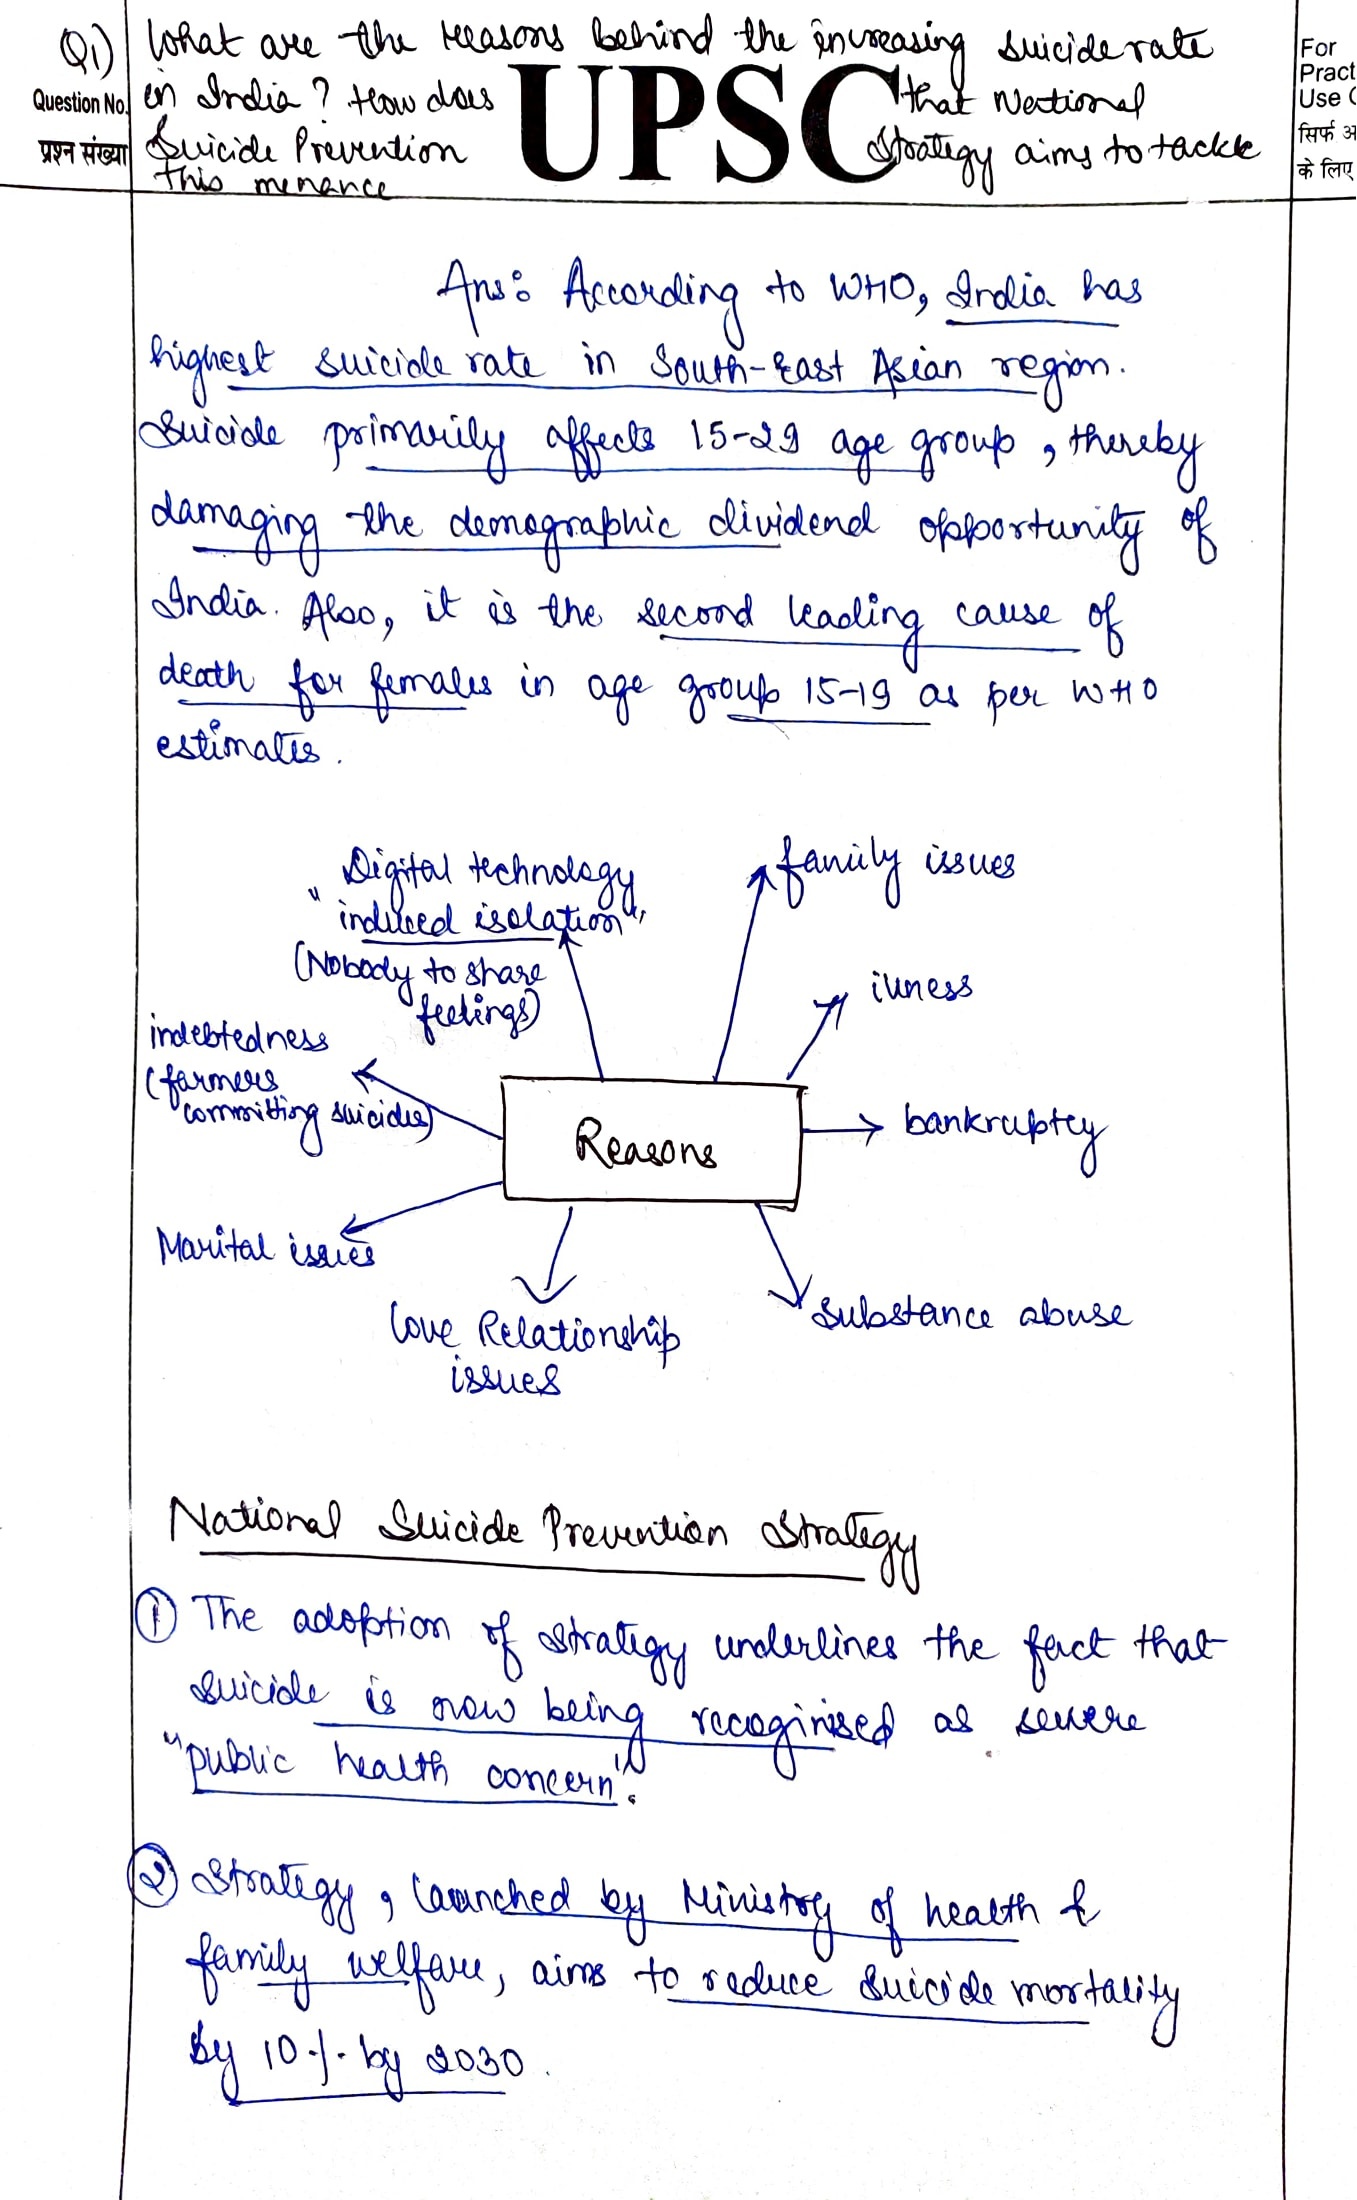 Q1) What are the reasons behind the increasing suicide rate
Question No. in India? How does UPSC that National
प्रश्न संख्या Suicide Prevention Strategy aims to tackle
this menance
For
Pract
Use
सिर्फ अ
के लिए
Ans: According to WHO, India has
highest suicide rate in South-East Asian region.
Suicide primarily affects 15-29 age group, thereby
damaging the demographic dividend opportunity of
India. Also, it is the second leading cause of
death for females in age group 15-19 as per WHO
estimates.
Digital technology
"induced isolation"
(Nobody to share
feelings)
family issues
illness
indebtedness
(farmers
committing suicides)
Reasons
bankruptcy
Marital issues
Love Relationship
issues
Substance abuse
National Suicide Prevention Strategy
① The adoption of strategy underlines the fact that
suicide is now being recoginised as severe
"public health concern".
② Strategy, launched by Ministry of health &
family welfare, aims to reduce suicide mortality
by 10% by 2030.